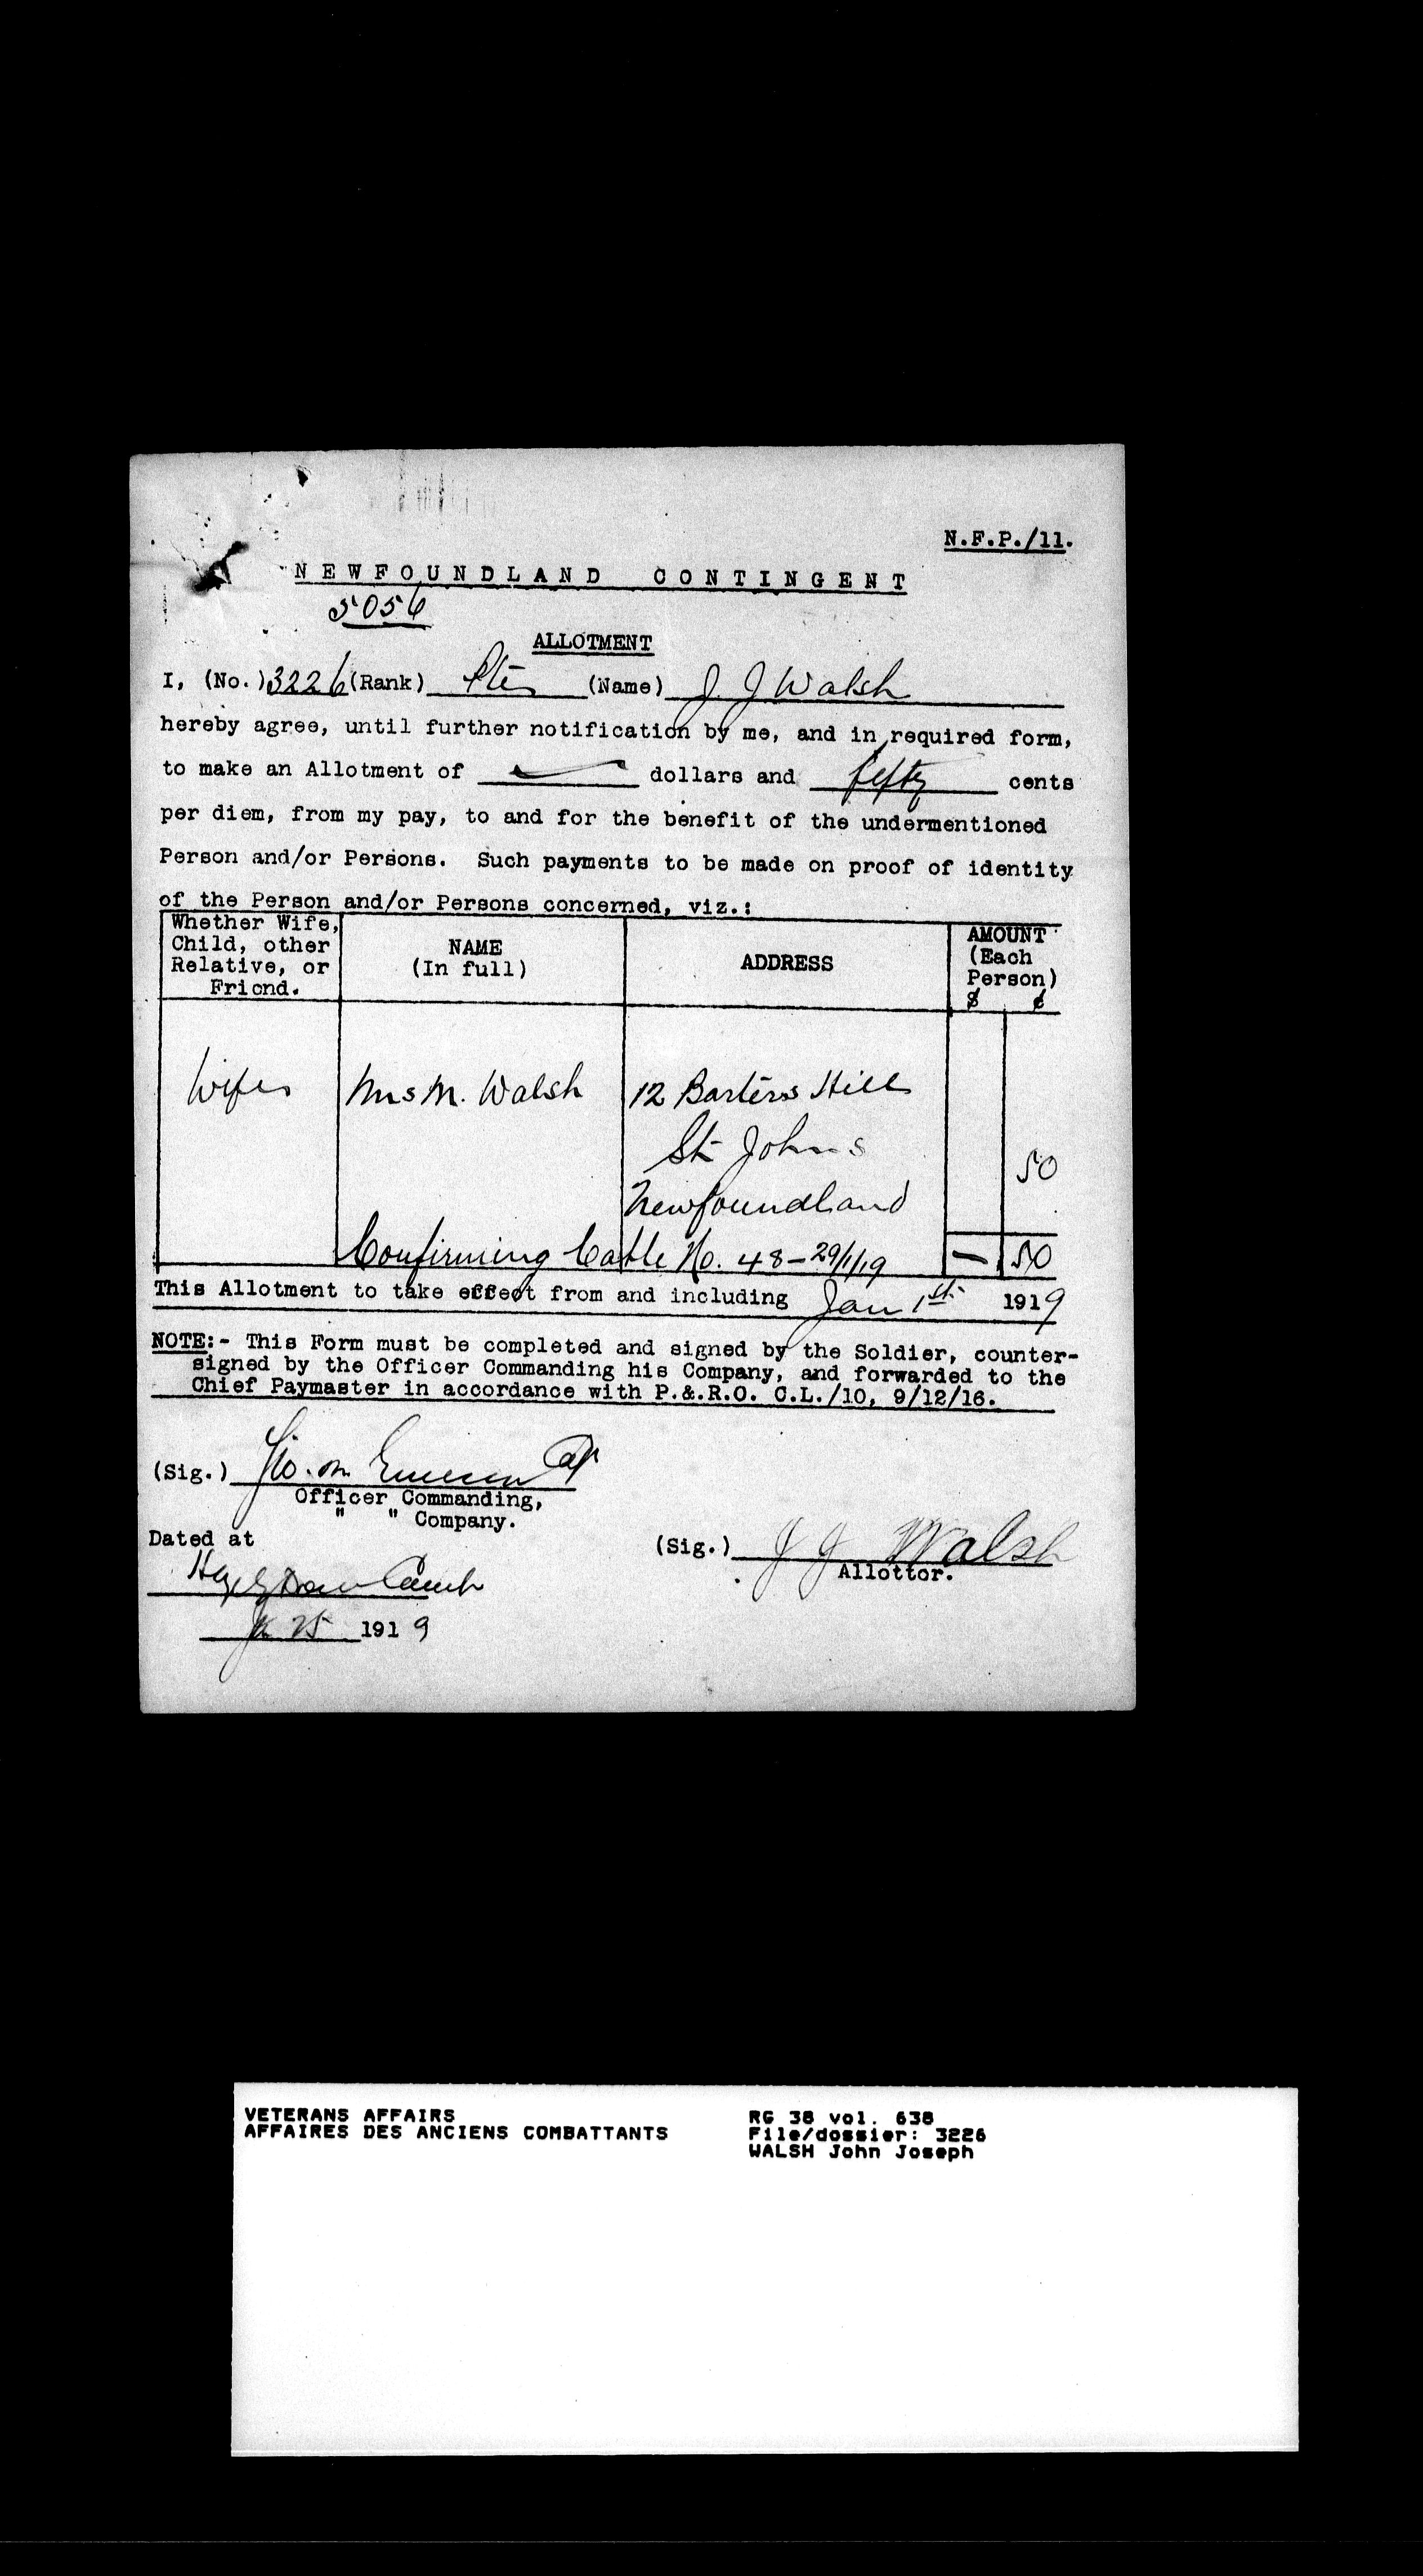 N.F.P./11.
NEWFOUNDLAND CONTINGENT
5056
ALLOTMENT
I, (No.) 3226 (Rank) Pte (Name) J. J Walsh
hereby agree, until further notification by me, and in required form,
to make an Allotment of — dollars and fifty cents
per diem, from my pay, to and for the benefit of the undermentioned
Person and/or Persons. Such payments to be made on proof of identity
of the Person and/or Persons concerned, viz.:
Whether Wife, Child, other Relative, or Friend. NAME (In full) ADDRESS AMOUNT (Each Person) $ ¢
Wife Mrs M. Walsh 12 Barters Hill
St Johns
50
Newfoundland
Confirming Cable No. 48 - 29/1/19 — 50
This Allotment to take effect from and including Jan 1st 1919
NOTE:- This Form must be completed and signed by the Soldier, counter-
signed by the Officer Commanding his Company, and forwarded to the
Chief Paymaster in accordance with P.&.R.O. C.L./10, 9/12/16.
(Sig.)
Officer Commanding,
" " Company.
Dated at
(Sig.) J J Walsh
Allottor.
Camp
25 1919
VETERANS AFFAIRS
AFFAIRES DES ANCIENS COMBATTANTS
RG 38 vol. 638
File/dossier: 3226
WALSH John Joseph